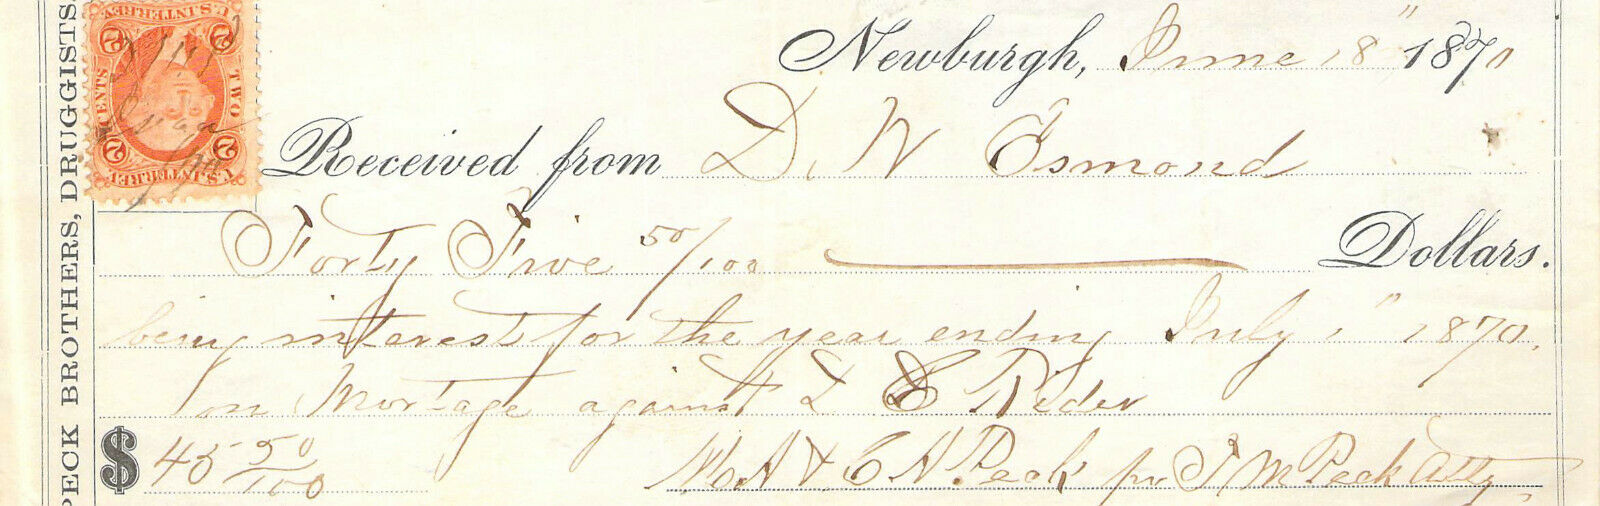 PECK BROTHERS, DRUGGISTS,
U.S. INTER. REV.
TWO CENTS
2 2
2 2
U.S. INTER. REV.
Newburgh, June 18" 1870
Received from D. W Osmond
Forty Five 50/100 Dollars.
being interest for the year ending July 1" 1870,
on Mortage against L E Rider
$ 45 50/100
& C H Peck pr J M Peck Atty